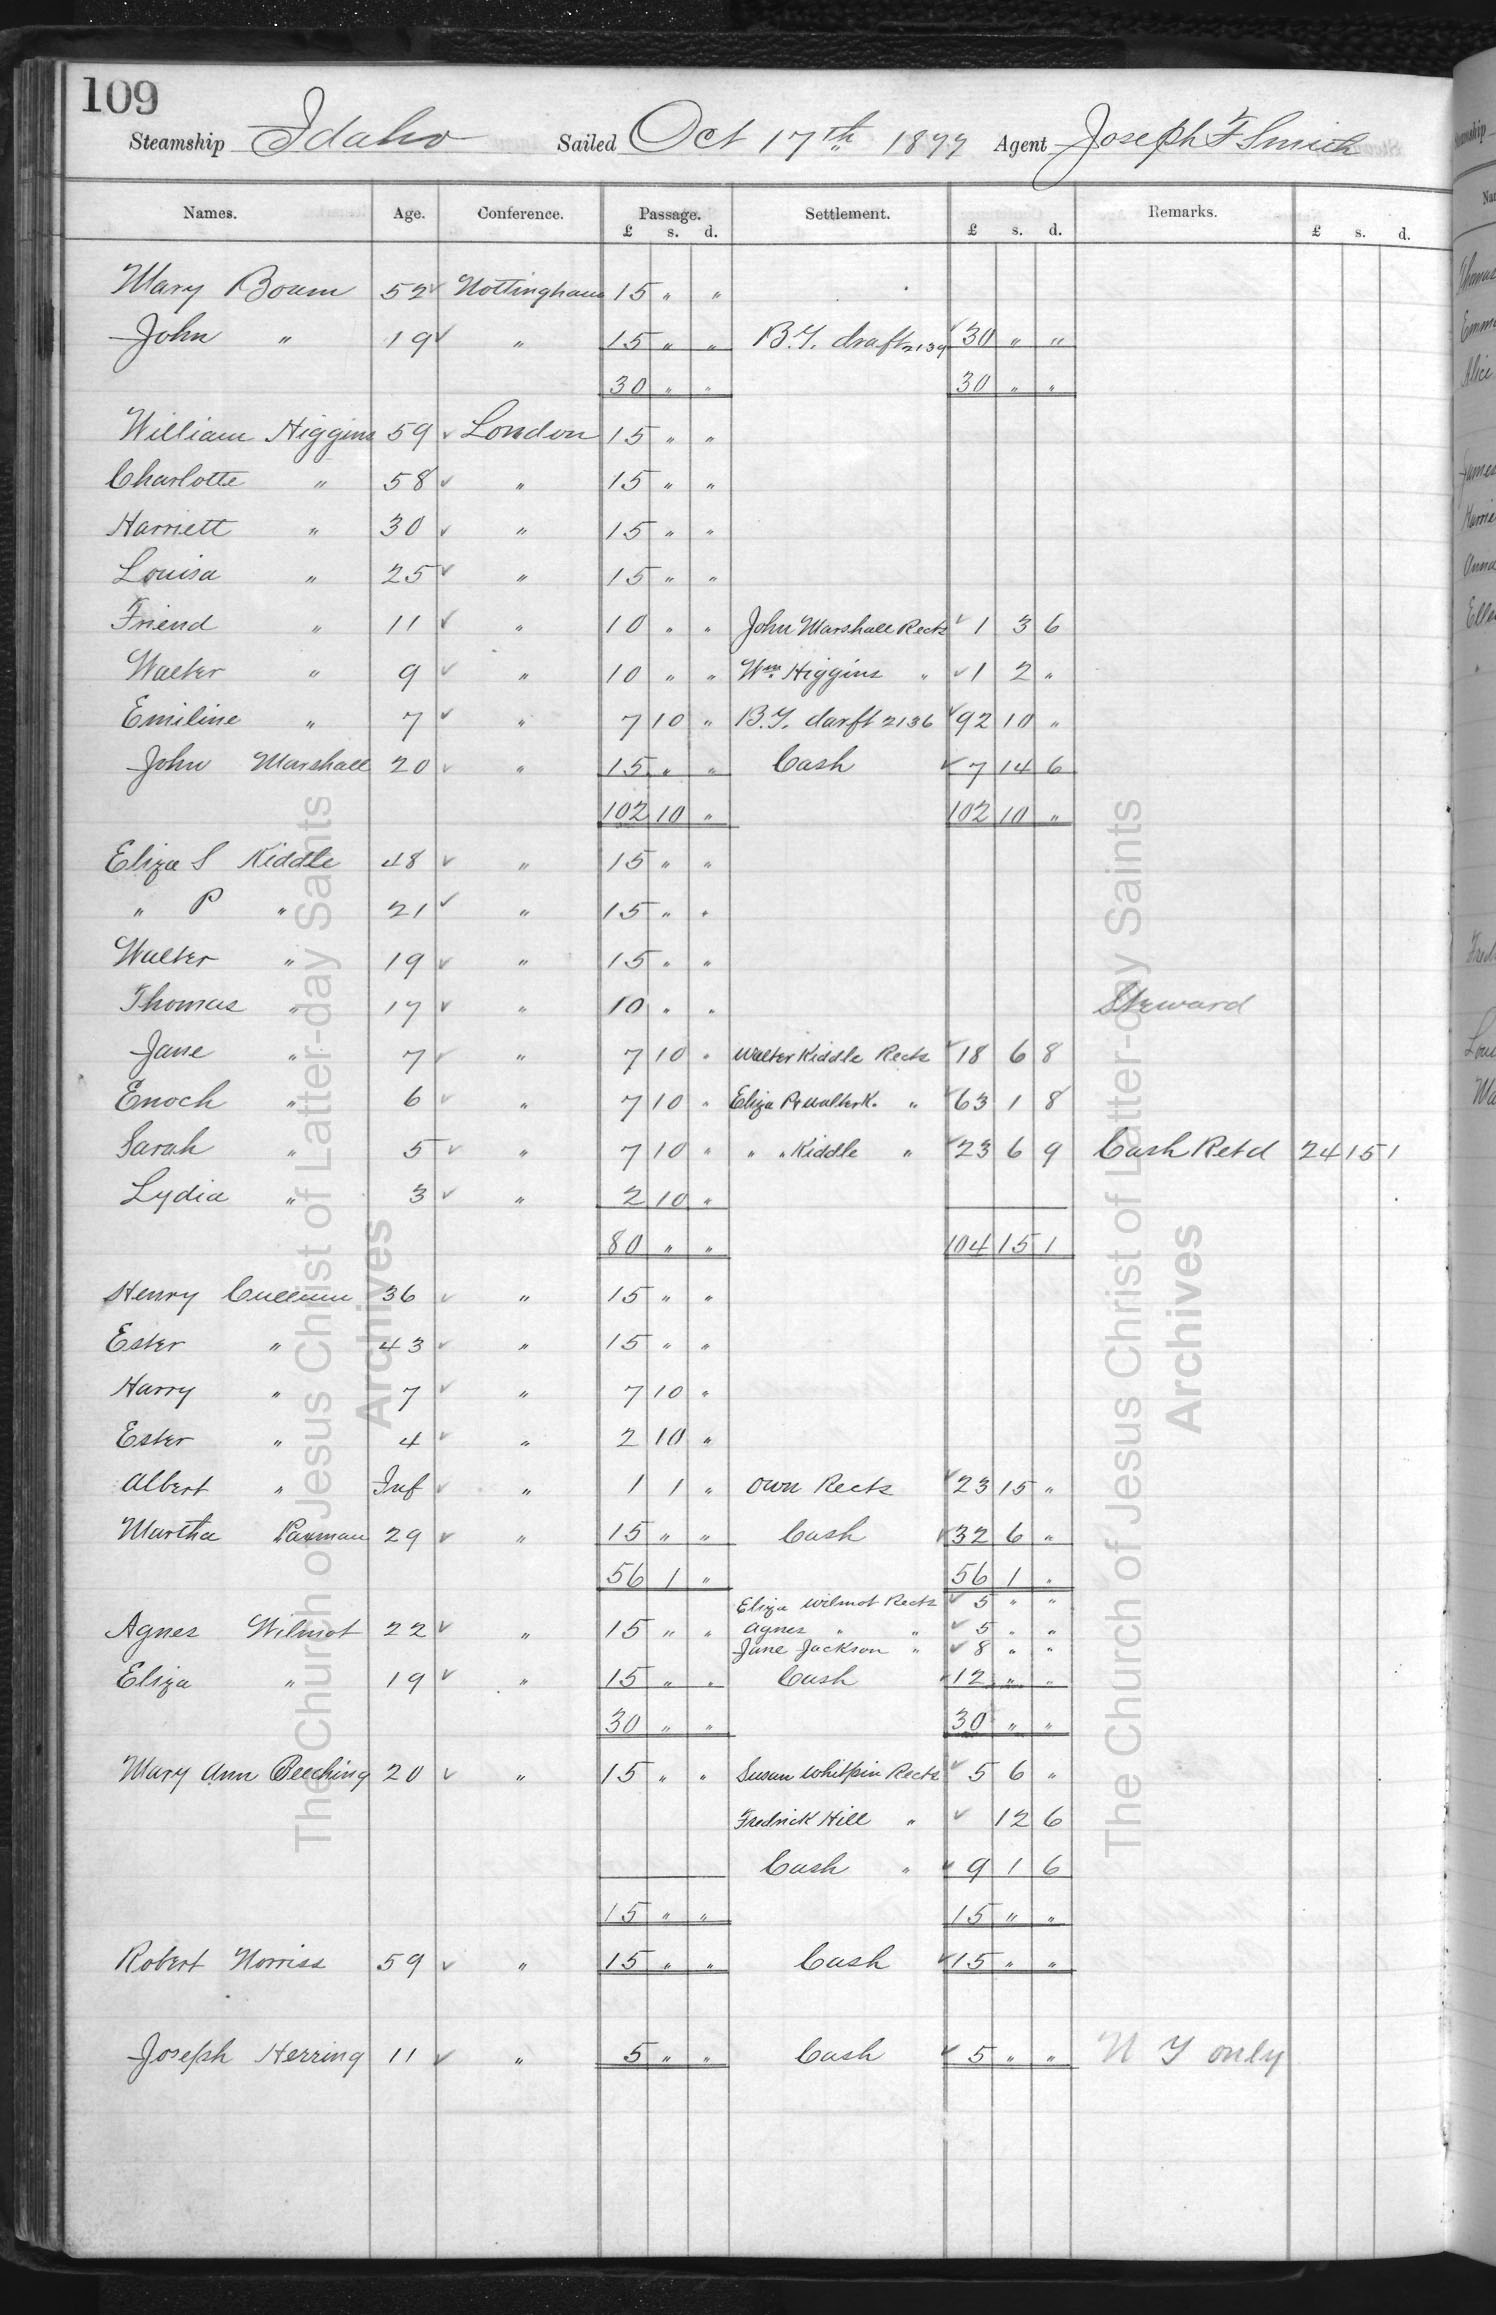 109
Steamship Idaho Sailed Oct 17th 1877 Agent Joseph F Smith
Names. Age. Conference. Passage. Settlement. Remarks.
£ s. d. £ s. d. £ s. d.
Mary Boam 52 ✓ Nottingham 15 " "
John " 19 ✓ " 15 " " B.Y. draft 2139 ✓ 30 " "
30 " " 30 " "
William Higgins 59 ✓ London 15 " "
Charlotte " 58 ✓ " 15 " "
Harriett " 30 ✓ " 15 " "
Louisa " 25 ✓ " 15 " "
Friend " 11 ✓ " 10 " " John Marshall Rects ✓ 1 3 6
Walter " 9 ✓ " 10 " " Wm Higgins " ✓ 1 2 "
Emiline " 7 ✓ " 7 10 " B.Y. darft 2136 ✓ 92 10 "
John Marshall 20 ✓ " 15 " " Cash ✓ 7 14 6
102 10 " 102 10 "
Eliza S Kiddle 48 ✓ " 15 " "
" P " 21 ✓ " 15 " "
Walter " 19 ✓ " 15 " "
Thomas " 17 ✓ " 10 " " Steward
Jane " 7 ✓ " 7 10 " Walter Kiddle Rects ✓ 18 6 8
Enoch " 6 ✓ " 7 10 " Eliza P & Walter K. " ✓ 63 1 8
Sarah " 5 ✓ " 7 10 " " " Kiddle " ✓ 23 6 9 Cash Retd 24 15 1
Lydia " 3 ✓ " 2 10 "
80 " " 104 15 1
Henry Cullum 36 ✓ " 15 " "
Ester " 43 ✓ " 15 " "
Harry " 7 ✓ " 7 10 "
Ester " 4 ✓ " 2 10 "
Albert " Inf ✓ " 1 1 " Own Rects ✓ 23 15 "
Martha Paxman 29 ✓ " 15 " " Cash ✓ 32 6 "
56 1 " 56 1 "
Eliza Wilmot Rects ✓ 5 " "
Agnes Wilmot 22 ✓ " 15 " " Agnes " " ✓ 5 " "
Jane Jackson " ✓ 8 " "
Eliza " 19 ✓ " 15 " " Cash ✓ 12 " "
30 " " 30 " "
Mary Ann Beeching 20 ✓ " 15 " " Susan Whitpin Rects ✓ 5 6 "
Fredrick Hill " ✓ 12 6
Cash " ✓ 9 1 6
15 " " 15 " "
Robert Norriss 59 ✓ " 15 " " Cash ✓ 15 " "
Joseph Herring 11 ✓ " 5 " " Cash ✓ 5 " " N Y only
The Church of Jesus Christ of Latter-day Saints
Archives
The Church of Jesus Christ of Latter-day Saints
Archives